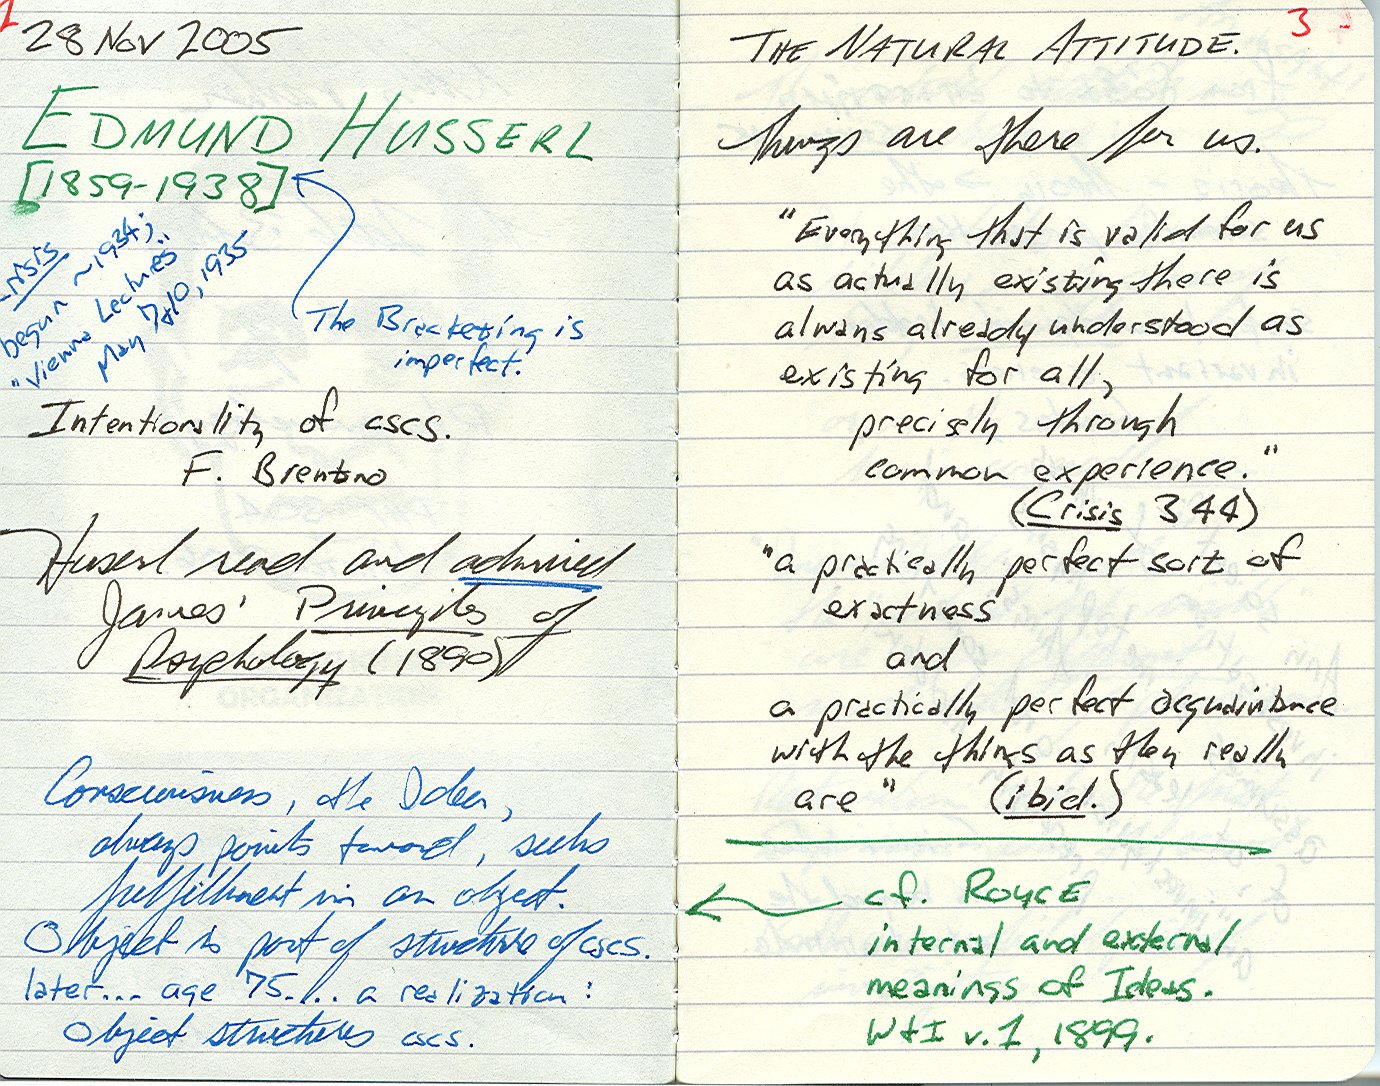 28 Nov 2005
EDMUND HUSSERL
[1859-1938]
Crisis
begun ~1934;
"Vienna Lectures"
May 7&10, 1935
The Bracketing is
imperfect.
Intentionality of cscs.
F. Brentano
Husserl read and admired
James' Principles of
Psychology (1890)
Consciousness, the Idea,
always points toward, seeks
fulfillment in an object.
Object is part of structure of cscs.
later... age 75.... a realization:
Object structures cscs.
3
THE NATURAL ATTITUDE.
things are there for us.
"Everything that is valid for us
as actually existing there is
always already understood as
existing for all,
precisely through
common experience."
(Crisis 344)
"a practically perfect sort of
exactness
and
a practically perfect acquaintance
with the things as they really
are" (ibid.)
cf. ROYCE
internal and external
meanings of Ideas.
W&I v.1, 1899.